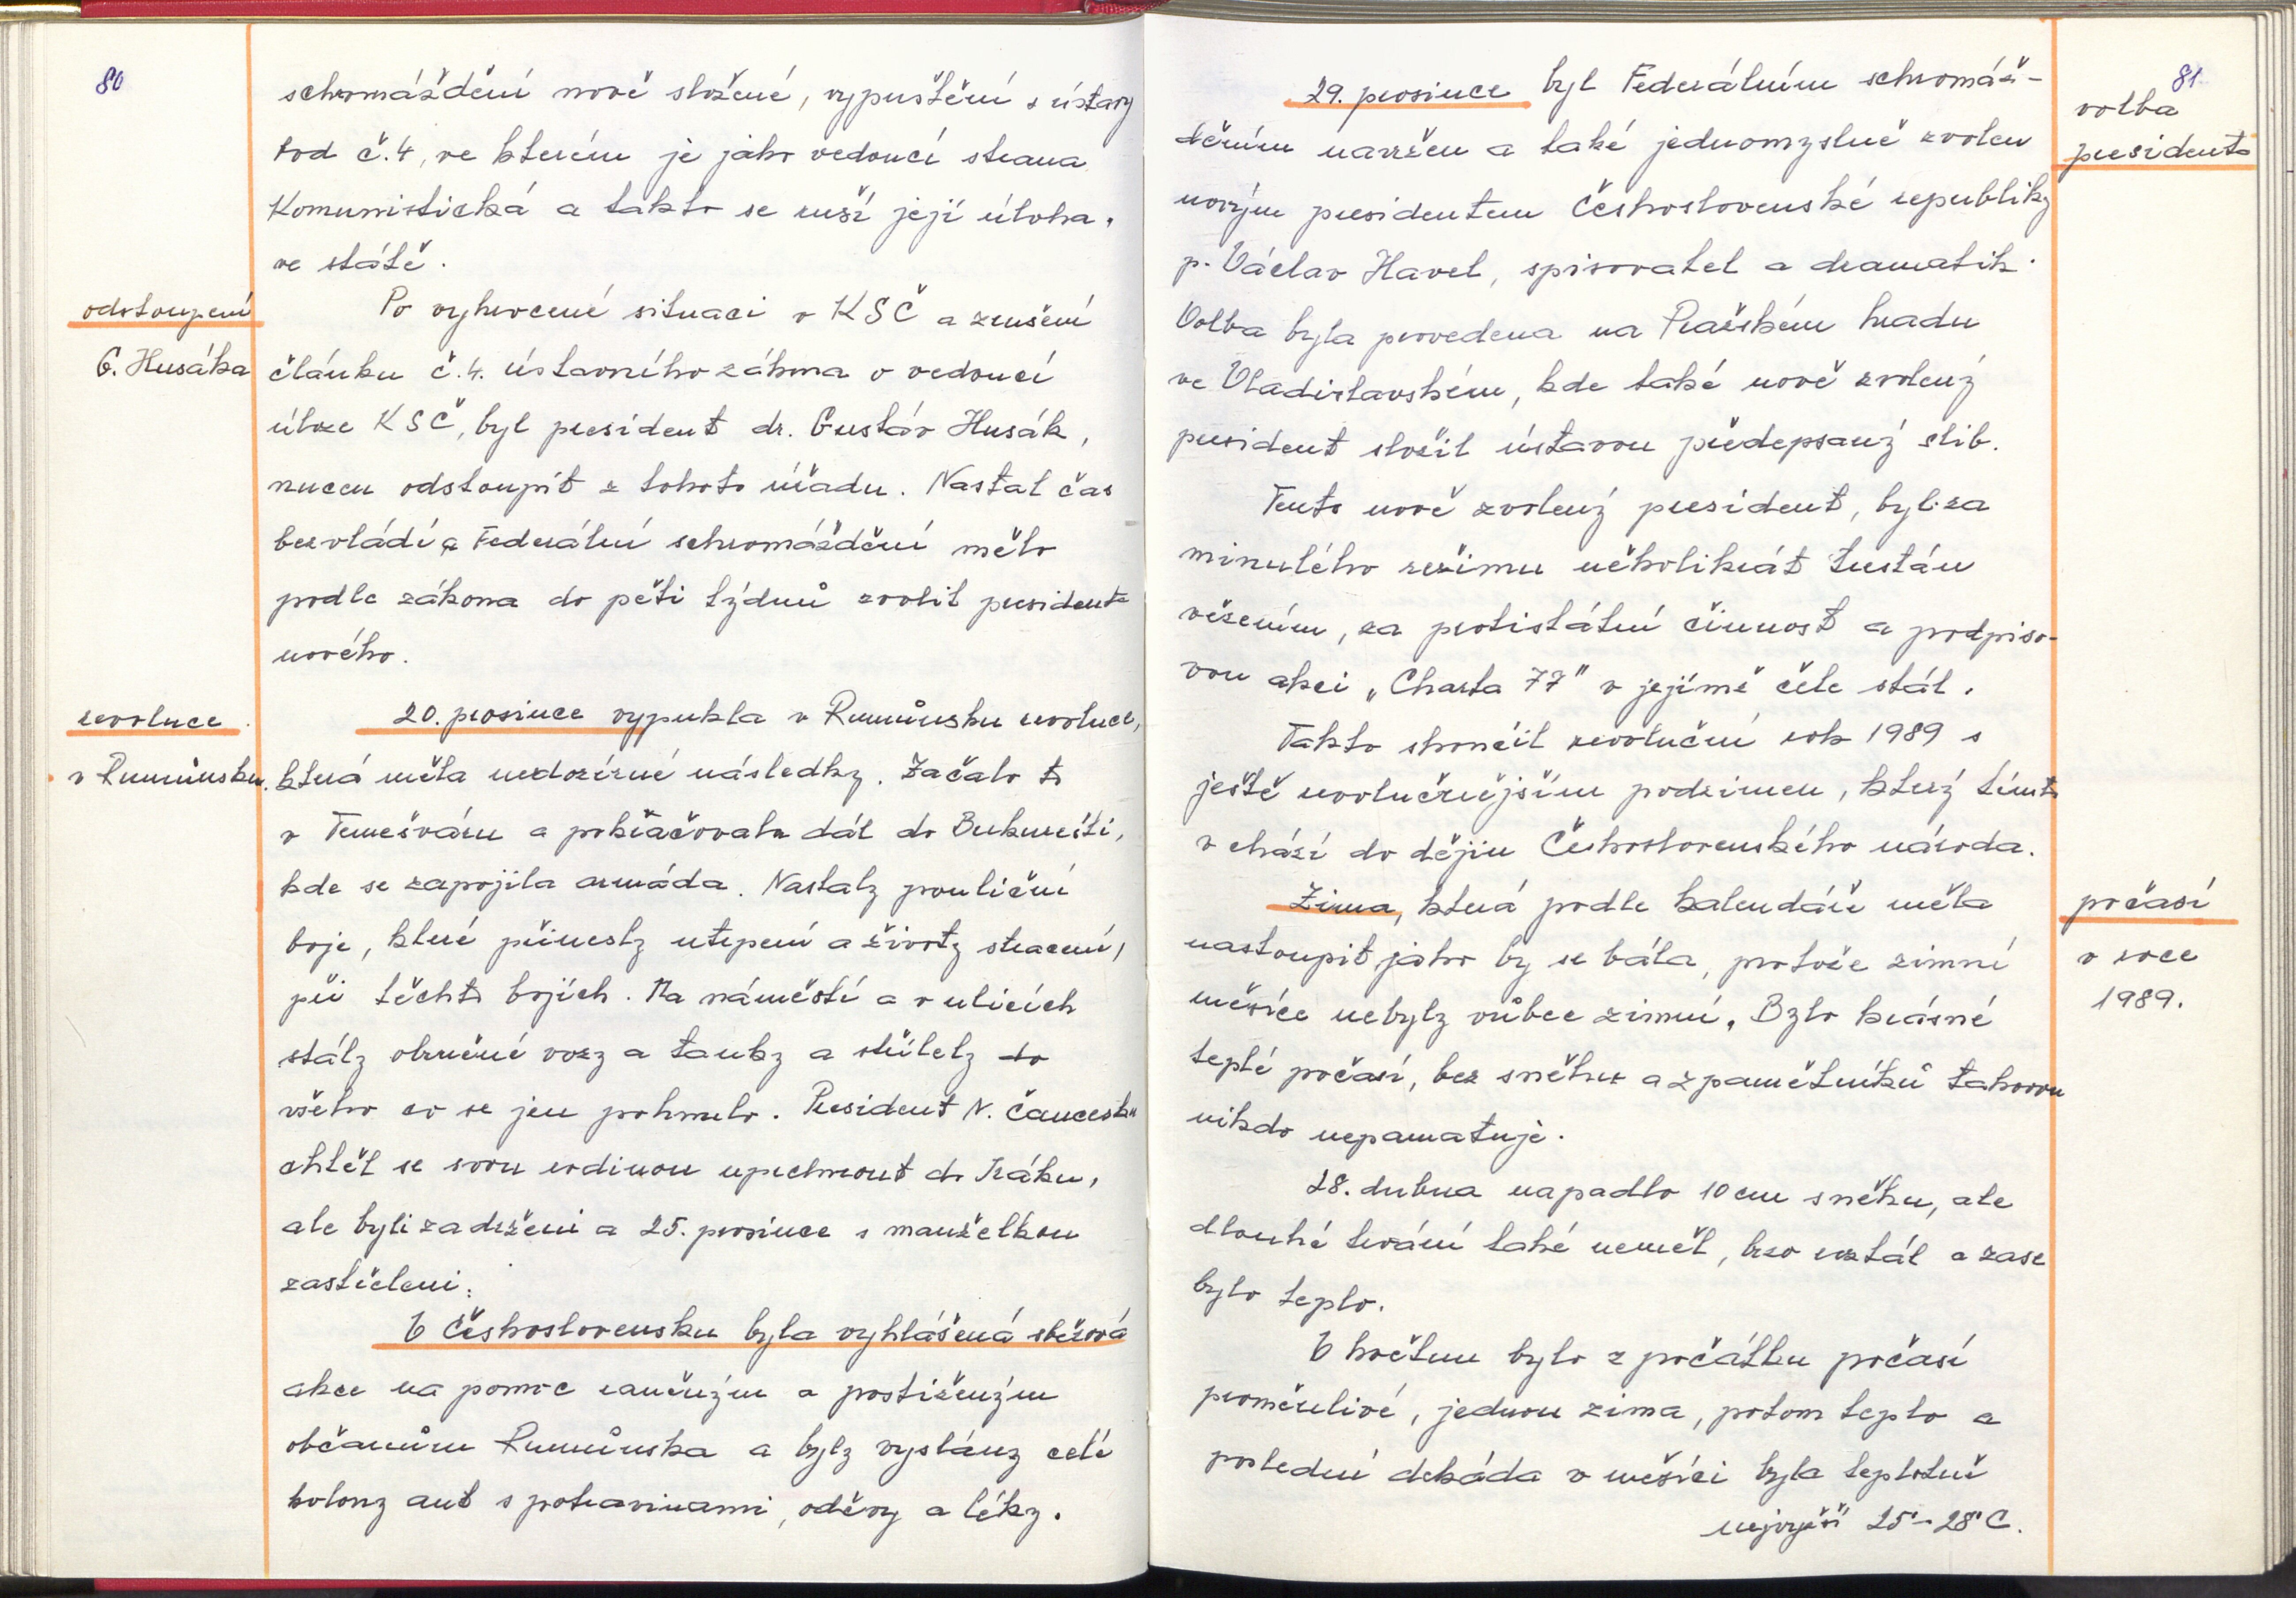 80
schromáždění nově složené, vypuštění s ústavy
bod č.4, ve kterém je jako vedoucí strana
Komunistická a takto se ruší její úloha,
ve státě.
odstoupení
G. Husáka
Po vyhrocené situaci v KSČ a zrušení
článku č.4. ústavního zákona o vedoucí
úloze KSČ, byl president dr. Gustáv Husák,
nucen odstoupit z tohoto úřadu. Nastal čas
bezvládí a Federální schromáždění mělo
podle zákona do pěti týdnů zvolit presidenta
nového.
revoluce
v Rumůnsku.
20. prosince vypukla v Rumůnsku revoluce,
která měla nedozírné následky. Začalo to
v Temešváru a pokračovalo dál do Bukurešti,
kde se zapojila armáda. Nastaly pouliční
boje, které přinesly utrpení a životy stracení,
při těchto bojích. Na náměstí a v ulicích
stály obrněné vozy a tanky a střílely do
všeho co se jen pohnulo. President N. Čaucesku
chtěl se svou rodinou uprchnout do Iráku,
ale byli zadrženi a 25. prosince s manželkou
zastřeleni.
V Československu byla vyhlášená sběrová
akce na pomoc raněným a postiženým
občanům Rumůnska a byly vyslány celé
kolony aut s potravinami, oděvy a léky.
81
volba
presidenta
29. prosince byl Federálním schromáž-
děním navržen a také jednomyslně zvolen
novým presidentem Československé republiky
p. Václav Havel, spisovatel a dramatik.
Volba byla provedena na Pražském hradu
ve Vladislavském, kde také nově zvolený
president složil ústavou předepsaný slib.
Tento nově zvolený president, byl za
minulého režimu několikrát trestán
vězením, za protistátní činnost a podpiso-
vou akci „Charta 77" v jejímž čele stál.
Takto skončil revoluční rok 1989 s
ještě revolučnějším podzimem, který tímto
vchází do dějin Československého národa.
počasí
v roce
1989.
Zima, která podle kalendáře měla
nastoupit jako by se bála, protože zimní
měsíce nebyly vůbec zimní. Bylo krásné
teplé počasí, bez sněhu a z pamětníků takovou
nikdo nepamatuje.
28. dubna napadlo 10 cm sněhu, ale
dlouhé trvání také neměl, brzo roztál a zase
bylo teplo.
V květnu bylo z počátku počasí
proměnlivé, jednou zima, potom teplo a
poslední dekáda v měsíci byla teplotně
nejvyšší 25°-28°C.